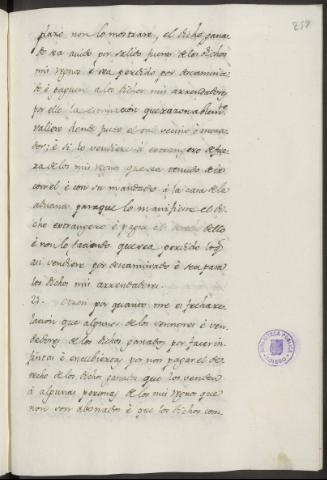 237
plazo non lo mostrare, el dicho gana-
do sea auido por salido fuera de los dichos
mis regnos é sea perdido por descamina-
do é paguen á los dichos mis arrendadores
por ello la estimación que razonablemte
valiere dende fuere el vecino ó mora-
dor; é si lo vendiere á extrangero de fue-
ra de los mis regnos que sea tenudo de ir
con él é con su mandado á la casa de la
aduana para que lo manifieste el di-
cho extrangero é pague el dello
é non lo faciendo que sea perdido lo q̃
asi vendiere por descaminado é sea para
los dichos mis arrendadores.
Otrosi por quanto me es fecha re-
lación que algunos de los sennores é ven-
dedores de los dichos ganados, por facer in-
fintas é encubiertas, por non pagar el de-
recho de los dichos ganados que los venden
á algunas personas de los mis regnos que
non son abonados é que los dichos com-
BIBLIOTECA PUBLICA
TOLEDO